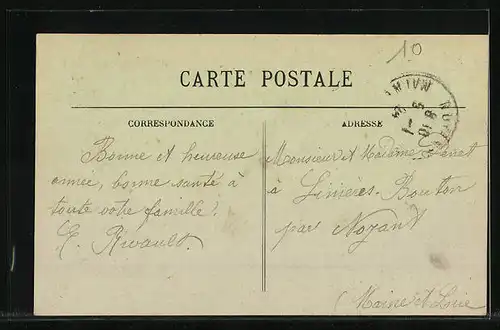 10
CARTE POSTALE
CORRESPONDANCE
ADRESSE
Bonne et heureuse
année, bonne santé à
toute votre famille!
E. Rivault
Monsieur et Madame
à Linières-Bouton
par Noyant
(Maine et Loire